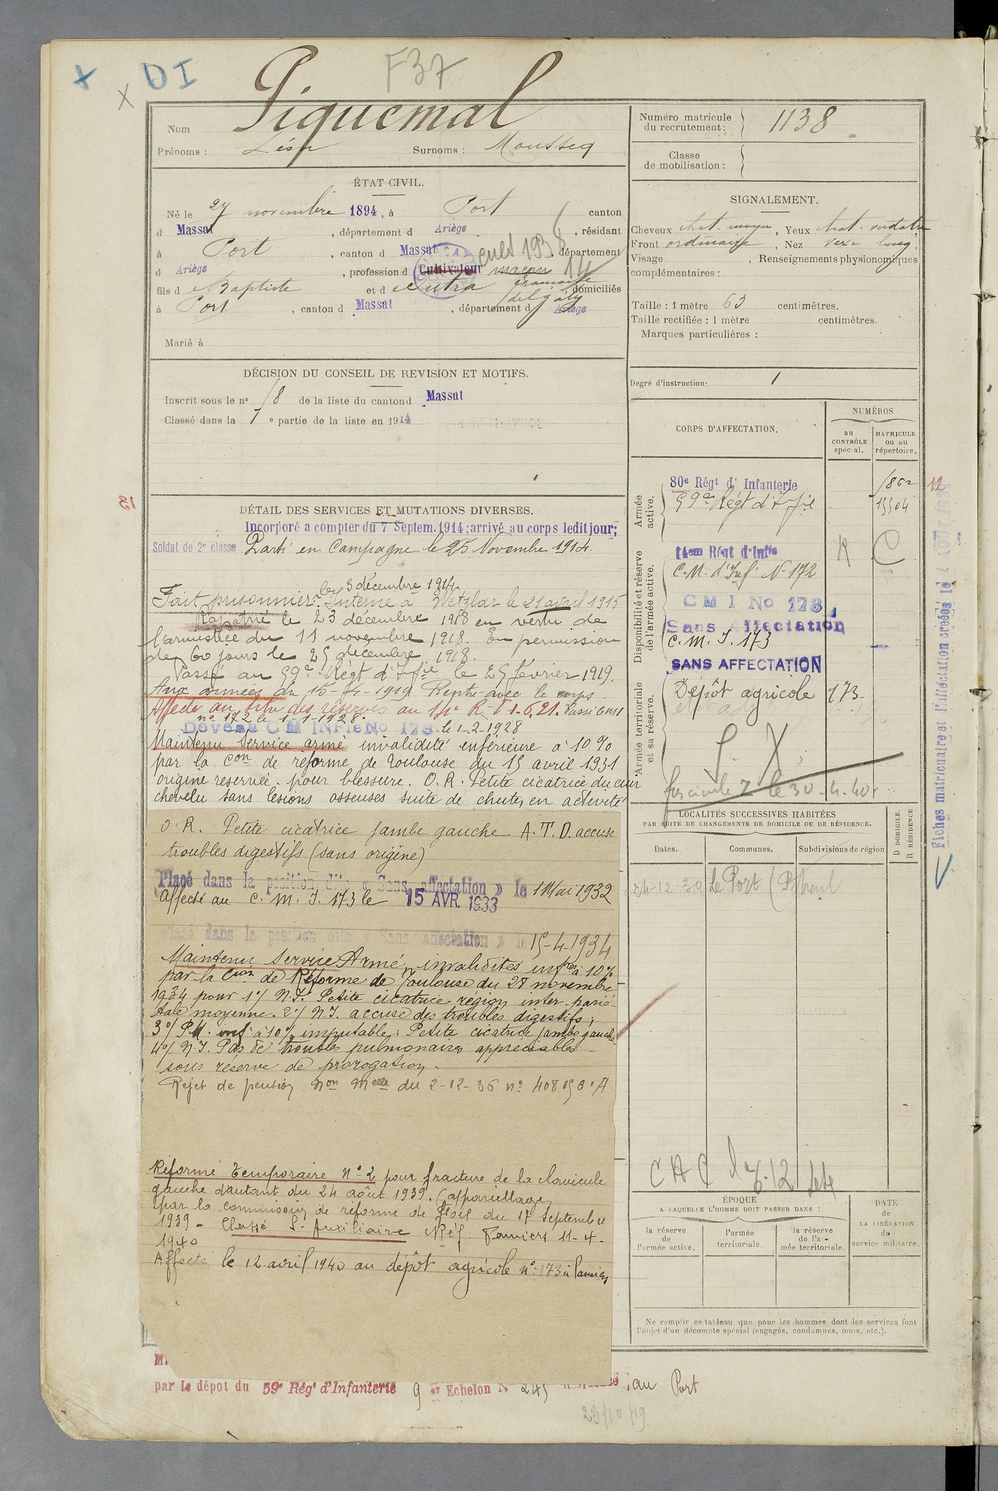 + DI
x
F37
Piquemal
Nom
Prénoms : Léon Surnoms : Mousseq
Numéro matricule
du recrutement : 1138
Classe
de mobilisation :
ÉTAT CIVIL.
Né le 27 novembre 1894, à Port canton
d Massat, département d Ariège, résidant
à Port, canton d Massat département
d Ariège, profession d Cultivateur maçon
fils d Baptiste et d domiciliés
à Port, canton d Massat, département d Ariège
Marié à
SIGNALEMENT.
Cheveux chat. moyen, Yeux chat. verdatre
Front ordinaire, Nez vexe long
Visage , Renseignements physionomiques
complémentaires :
Taille : 1 mètre 63 centimètres.
Taille rectifiée : 1 mètre centimètres.
Marques particulières :
Degré d'instruction: 1
DÉCISION DU CONSEIL DE REVISION ET MOTIFS.
Inscrit sous le n° 18 de la liste du canton d Massat
Classé dans la 1 e partie de la liste en 1914
CORPS D'AFFECTATION.
NUMÉROS
au
CONTRÔLE
spécial.
MATRICULE
ou au
répertoire.
Armée
active.
80e Régt d' Infanterie
59e Régt d'Infie
15504
12
Disponibilité et réserve
de l'armée active.
14em Régt d'Infie
C.M. d'Inf. N° 172
C M I No 173
Sans Affectation
C.M.I. 173
SANS AFFECTATION
Armée territoriale
et sa réserve.
Dépôt agricole 173
S. X.
fascicule Z le 30-4-40
13
DÉTAIL DES SERVICES ET MUTATIONS DIVERSES.
Incorporé a compter du 7 Septem. 1914; arrivé au corps ledit jour;
Soldat de 2e classe Parti en Campagne le 25 Novembre 1914.
Fait prisonnier le 3 décembre 1914. Interné à Wetzlar le 21 avril 1915
Rapatrié le 23 décembre 1918 en vertu de
l'armistice du 11 novembre 1918. En permission
de 60 jours le 25 décembre 1918.
Passé au 59e Régt d'Infie le 25 février 1919.
Aux armées du 15-4-1919
Affecté au titre des réserves au 14e R.I. 1.6.21. Passé CMI
n° 172 le 1-1-1928.
Devenu C M INFIE No 173 le 1-2-1928
Maintenu Service armé invalidité inférieure à 10%
par la Con de réforme de Toulouse du 15 avril 1931
origine réservée. pour blessure. O.R. Petite cicatrice du cuir
chevelu sans lésions osseuses suite de chute, en activité
O.R. Petite cicatrice jambe gauche A.T.D. accuse
troubles digestifs (sans origine)
Placé dans la position dite « Sans affectation » le 1 Mai 1932
Affecté au C.M.I. 173 le 15 AVR. 1933
Placé dans la position dite « Sans affectation » le 15-4-1934
Maintenu Service Armé, invalidités infres à 10%
par la Con de Réforme de Toulouse du 28 novembre
1934 pour 1°/ N.I. Petite cicatrice région inter-parié-
tale moyenne. 2°/ N.I. accuse des troubles digestifs;
3°/ P.M. inf. à 10% imputable; Petite cicatrice jambe gauche
4°/ N.I. Pas de troubles pulmonaires appréciables
sous réserve de prorogation.
Rejet de pension du 2-12-36
Réformé temporaire N° 2 pour fracture de la clavicule
gauche datant du 24 août 1939. (appareillage
par la commission de réforme de Foix du 17 septembre
1939 - Classé S. Auxiliaire Réf. Pamiers 11-4-
1940
Affecté le 12 avril 1940 au dépôt agricole n° 173 à Pamiers
LOCALITÉS SUCCESSIVES HABITÉES
PAR SUITE DE CHANGEMENTS DE DOMICILE OU DE RÉSIDENCE.
Dates. Communes. Subdivisions de région
D DOMICILE.
R RÉSIDENCE
24-12-38 Le Port
ÉPOQUE
A LAQUELLE L'HOMME DOIT PASSER DANS :
la réserve
de
l'armée active.
l'armée
territoriale.
la réserve
de l'ar-
mée territoriale.
DATE
de
LA LIBÉRATION
du
service militaire.
Ne remplir ce tableau que pour les hommes dont les services font
l'objet d'un décompte spécial (engagés, condamnés, omis, etc.).
par le dépôt du 59e Régt d'Infanterie 9 Echelon N° 245 au Port